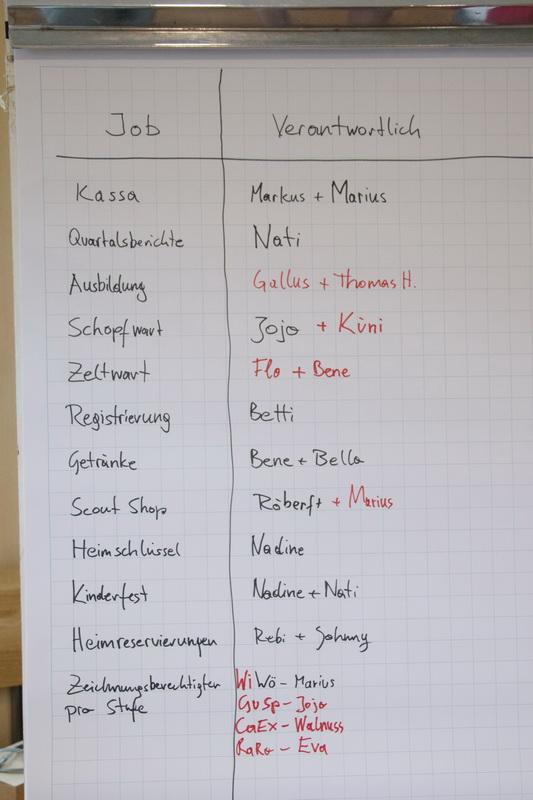 Job Verantwortlich
Kassa Markus + Marius
Quartalsberichte Nati
Ausbildung Gallus + Thomas H.
Schopfwart Jojo + Küni
Zeltwart Flo + Bene
Registrierung Betti
Getränke Bene + Bella
Scout Shop Röberft + Marius
Heimschlüssel Nadine
Kinderfest Nadine + Nati
Heimreservierungen Rebi + Johnny
Zeichnungsberechtigten WiWö - Marius
pro Stufe GuSp - Jojo
CaEx - Walnuss
RaRo - Eva